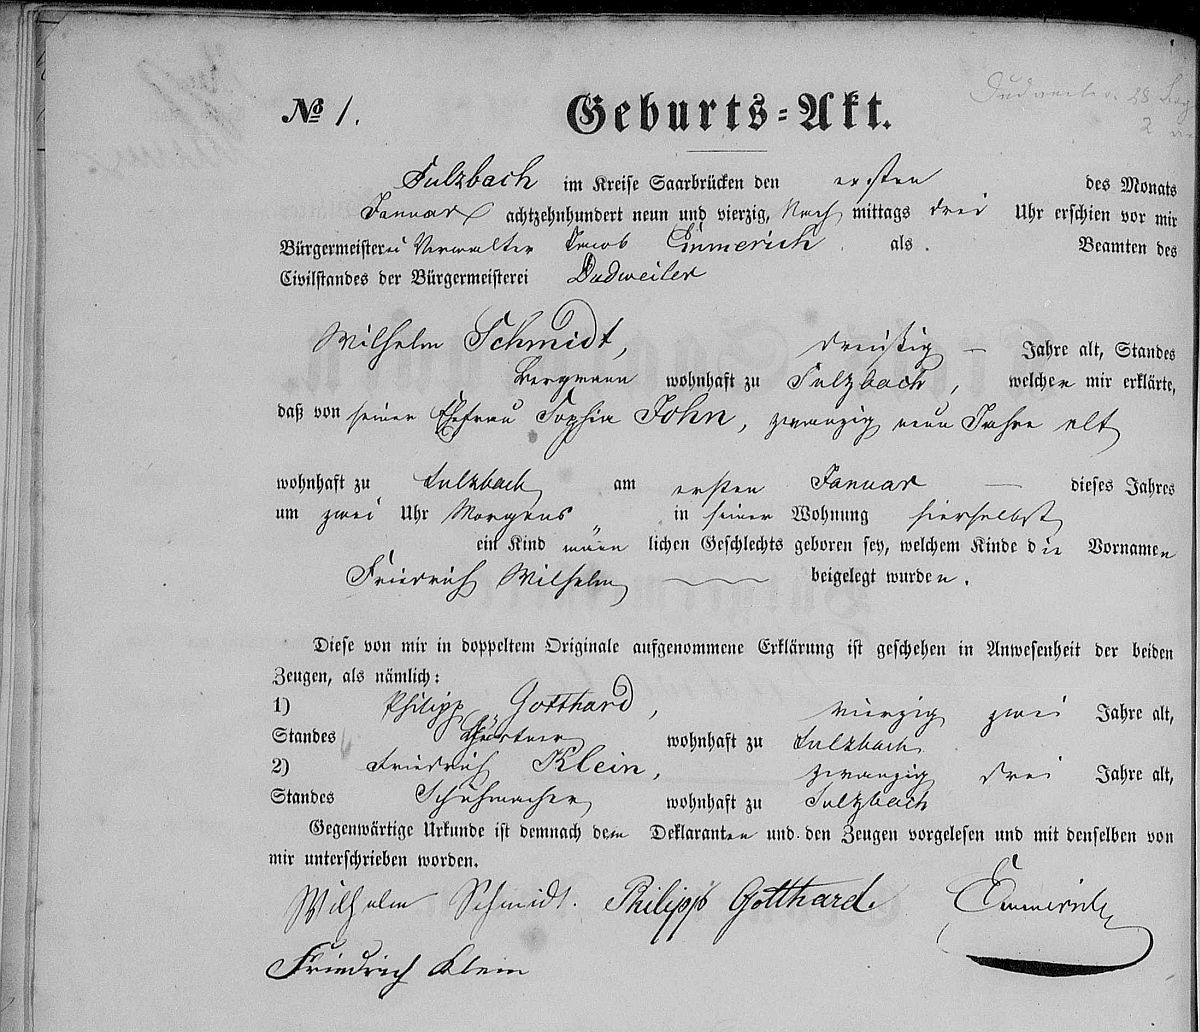 № 1. Geburts-Akt.
Sulzbach im Kreise Saarbrücken den ersten des Monats
Januar achtzehnhundert neun und vierzig, Nach mittags drei Uhr erschien vor mir
Bürgermeisterei Verwalter Jacob Emmerich als Beamten des
Civilstandes der Bürgermeisterei Dudweiler
Wilhelm Schmidt, dreißig — Jahre alt, Standes
Bergmann wohnhaft zu Sulzbach, welcher mir erklärte,
daß von seiner Ehefrau Sophia John, zwanzig neun Jahre alt
wohnhaft zu Sulzbach am ersten Januar — dieses Jahres
um zwei Uhr Morgens „ in seiner Wohnung hierselbst
ein Kind männlichen Geschlechts geboren sey, welchem Kinde die Vornamen
Friedrich Wilhelm beigelegt wurden.
Diese von mir in doppeltem Originale aufgenommene Erklärung ist geschehen in Anwesenheit der beiden
Zeugen, als nämlich:
1) Philipp Gotthard, vierzig zwei Jahre alt,
Standes Gärtner wohnhaft zu Sulzbach
2) Friedrich Klein, zwanzig drei Jahre alt,
Standes Schuhmacher wohnhaft zu Sulzbach
Gegenwärtige Urkunde ist demnach dem Deklaranten und den Zeugen vorgelesen und mit denselben von
mir unterschrieben worden.
Wilhelm Schmidt. Philipp Gotthard. Emmerich
Friedrich Klein